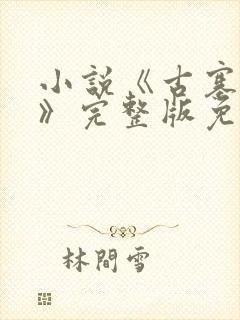 小說《古塞
》完整版免
林間雪